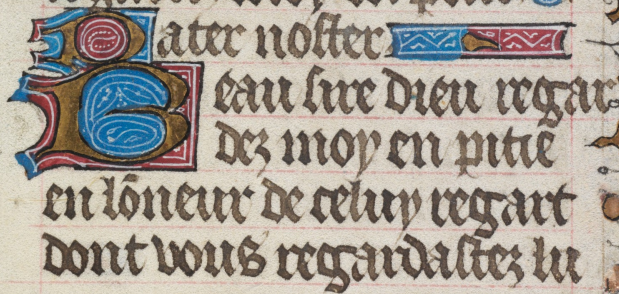 Pater noster
Beau sire dieu regar
dez moy en pitie
en lõneur de celuy regart
dont vous regardastez lu